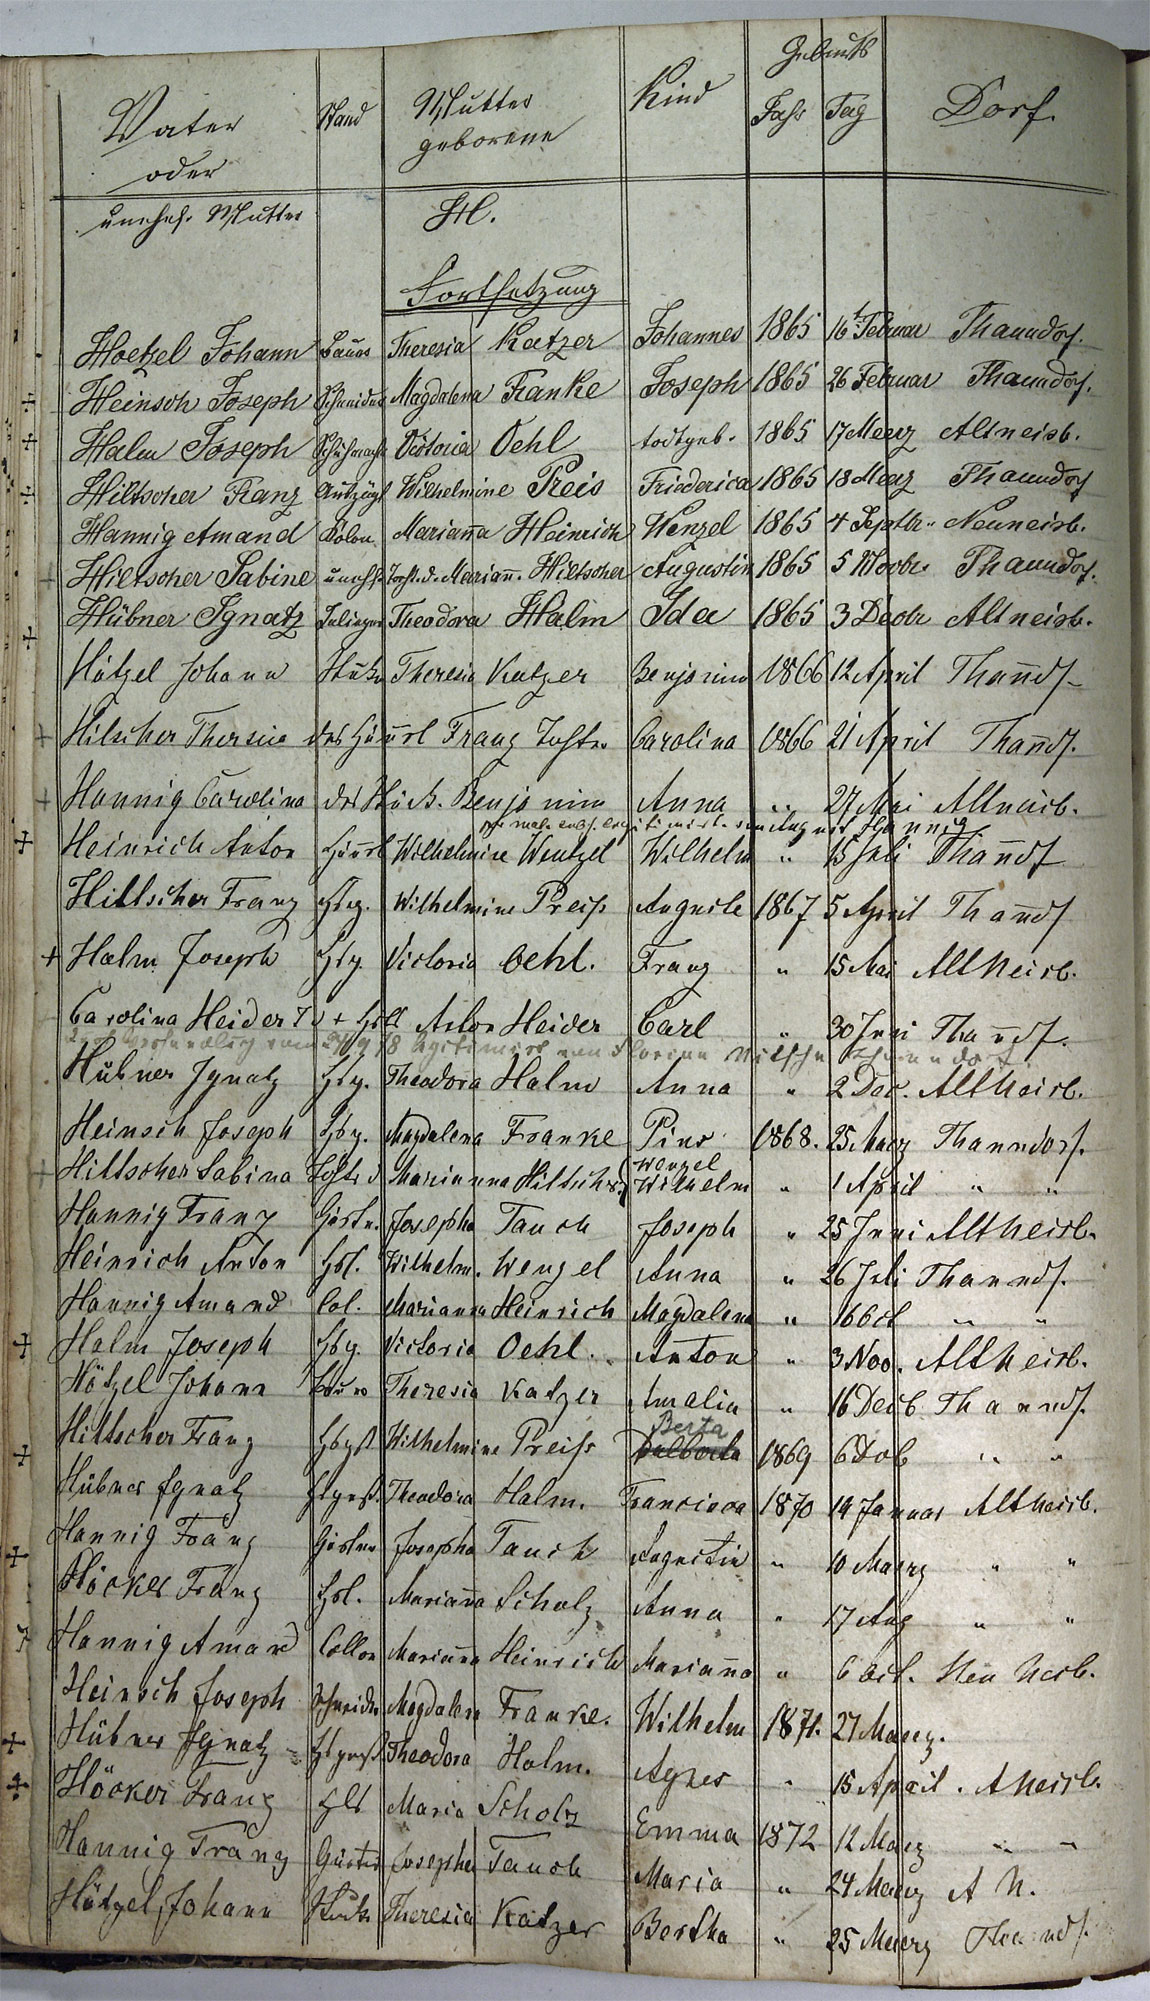 Geburts
Vater Stand Mutter Kind Jahr Tag Dorf.
oder geborene
unehel. Mutter H.
Fortsetzung
Hoetzel Johann Bauer Theresia Katzer Johannes 1865 16t Februar Thanndorf.
Heinsch Joseph Schneider Magdalena Franke Joseph 1865 26 Februar Thanndorf.
Halm Joseph Schuhmach Victoria Oehl todtgeb. 1865 17 Merz Altneisb.
Hiltscher Franz Auszügl Wilhelmine Preis Friederica 1865 18 Merz Thanndorf
Hannig Amand Colon Marianna Heinrich Wenzel 1865 4 Septbr. Neuneisb.
Hiltscher Sabine unehl. Tocht. d. Mariann. Hiltscher Augustin 1865 5 Novbr. Thanndorf.
Hübner Ignatz Inlieger Theodora Halm Ida 1865 3 Decbr Altneisb.
Hötzel Johann Theresia Katzer Benjamin 1866 12 April Thanndf
Hilscher Theresia des Häusl Franz Tochter Carolina 1866 21 April Thanndf.
Hannig Carolina des Benjamin Anna " 27 Mai Altneisb.
legitimirt von August Hannig
Heinrich Anton Häusl Wilhelmine Wentzel Wilhelm " 15 Juli Thanndf
Hiltscher Franz Wilhelmine Preiss Auguste 1867 5 April Thanndf
Halm Joseph Victoria Oehl. Franz " 15 Mai Altneisb.
Carolina Heider T d + Anton Heider Carl " 30 Juni Thanndf.
legitimirt von Florian
Hübner Ignatz Theodora Halm Anna " 2 Dec. Altneisb.
Heinsch Joseph Hbg. Magdalena Franke Pius 1868. 25 Maerz Thanndorf.
Wenzel
Hiltscher Sabina Tocht d Marianna Hiltscher Wilhelm " 1 April " "
Hannig Franz Gärtn. Josepha Tauch Joseph " 25 Juni Altneisb.
Heinrich Anton Hsl. Wilhelm. Wenzel Anna " 26 Juli Thanndf.
Hannig Amand Col. Marianna Heinrich Magdalena " 16 Oct " "
Halm Joseph Hbg. Victoria Oehl. Anton " 3 Nov. Altneisb.
Hötzel Johann Bauer Theresia Katzer Amalia " 16 Decb Thanndf.
Berta
Hiltscher Franz Wilhelmine Preiss 1869 6 " "
Hübner Ignatz Theodora Halm. Francisca 1870 14 Januar Altneisb.
Hannig Franz Gärtner Josepha Tauch Augustin " 10 Maerz " "
Höcker Franz Hsl. Marianna Scholz Anna " 17 Aug " "
Hannig Amand Collon Marianna Heinrich Marianna " 6 Oct. Neu Neisb.
Heinsch Joseph Schneider Magdalena Franke. Wilhelm 1871. 27 Maerz.
Hübner Ignatz Theodora Halm. Agnes " 15 April. A Neisb.
Höcker Franz Maria Scholz Emma 1872 12 Maerz " "
Hannig Franz Gärtner Josepha Tauch Maria " 24 Maerz A N.
Hötzel Johann Theresia Katzer Bertha " 25 Maerz Thanndf.